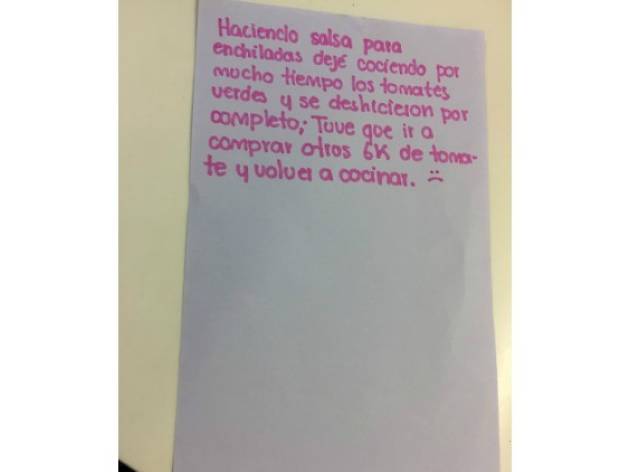 Haciendo salsa para
enchiladas dejé cociendo por
mucho tiempo los tomates
verdes y se deshicieron por
completo; Tuve que ir a
comprar otros 6K de toma-
te y volver a cocinar. :(